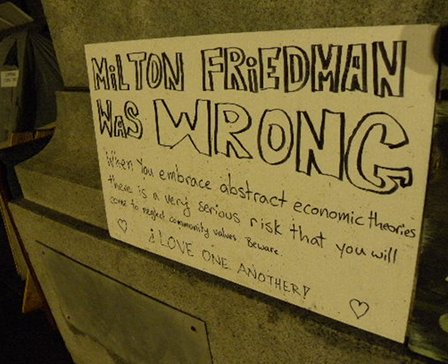 MiLTON FRiEDMAN
WAS WRONG
When You embrace abstract economic theories
there is a very serious risk that you will
come to neglect community values. Beware.
♡ ¡LOVE ONE ANOTHER! ♡